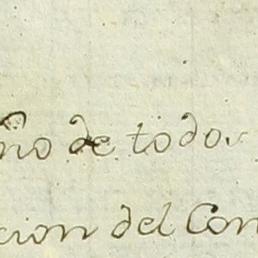 ño de todos
cion del Con